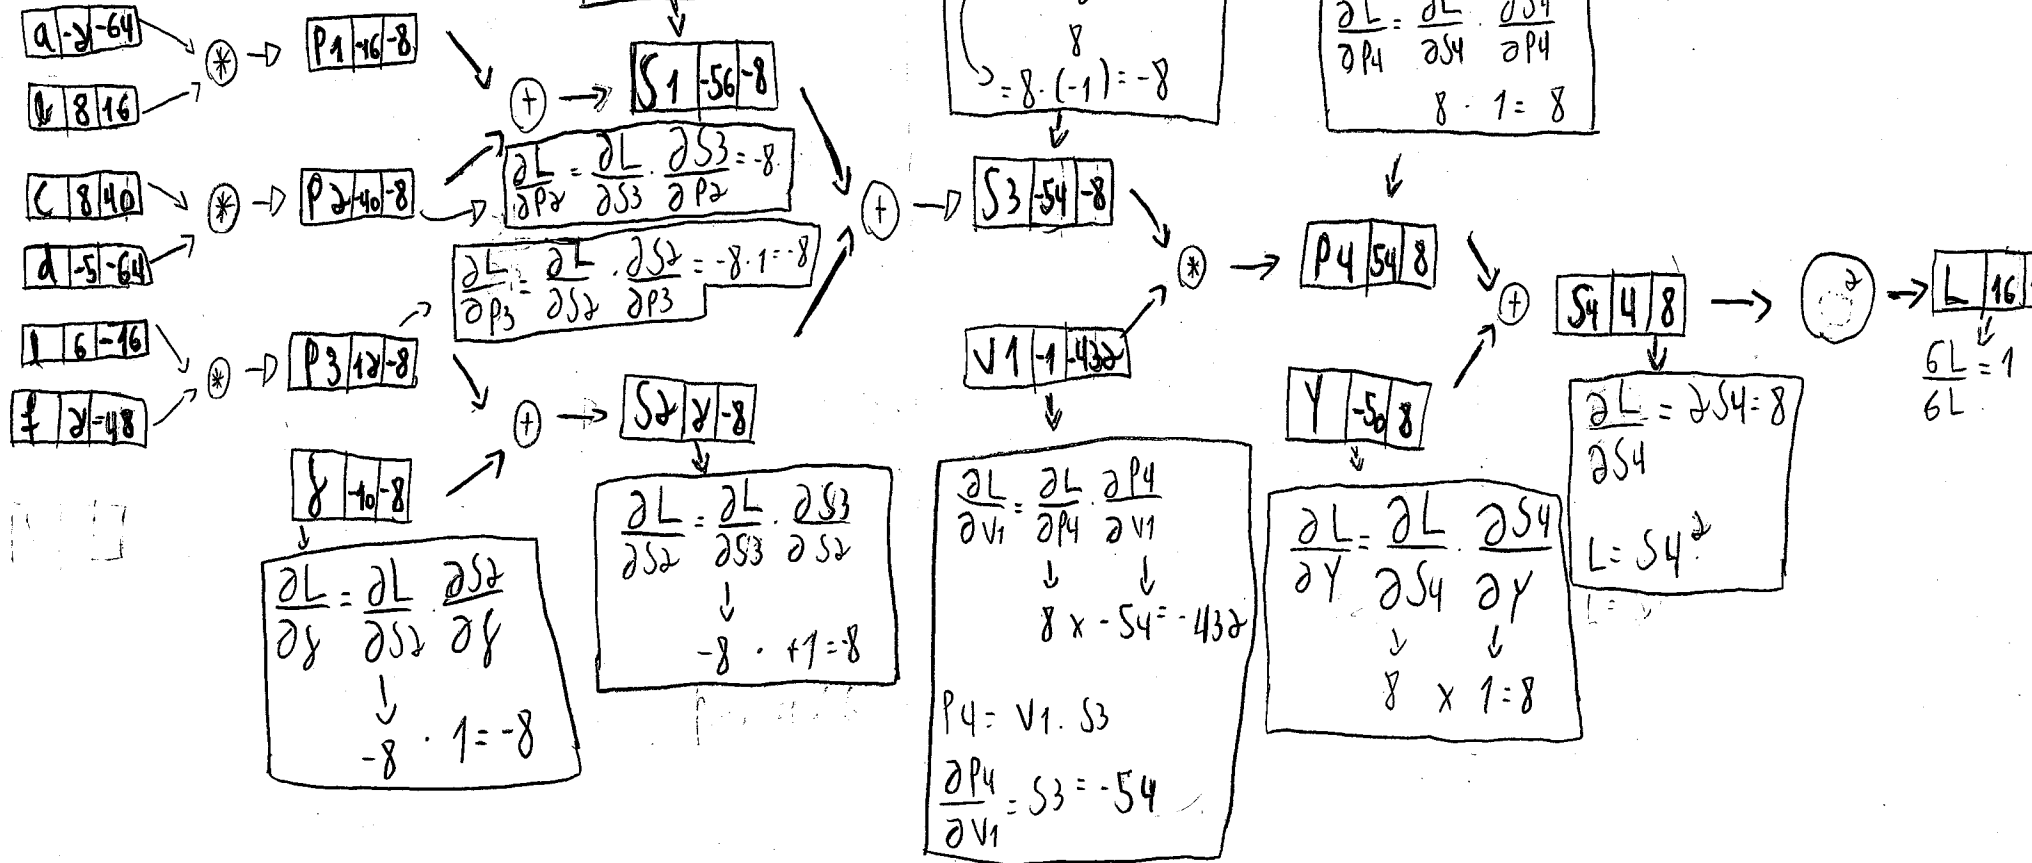 a -2 -64
b 8 16
c 8 40
d -5 -64
l 6 -16
f 2 -48
*
*
*
P1 -16 -8
P2 -40 -8
P3 12 -8
g -10 -8
∂L/∂g = ∂L/∂S2 · ∂S2/∂g
-8 · 1 = -8
+
+
S1 -56 -8
∂L/∂P2 = ∂L/∂S3 · ∂S3/∂P2 = -8
∂L/∂P3 = ∂L/∂S2 · ∂S2/∂P3 = -8 · 1 = -8
S2 2 -8
∂L/∂S2 = ∂L/∂S3 · ∂S3/∂S2
-8 · +1 = -8
+
8
= 8 · (-1) = -8
S3 -54 -8
V1 -1 -432
∂L/∂V1 = ∂L/∂P4 · ∂P4/∂V1
8 x -54 = -432
P4 = V1 · S3
∂P4/∂V1 = S3 = -54
*
∂L/∂P4 = ∂L/∂S4 · ∂S4/∂P4
8 · 1 = 8
P4 54 8
Y -50 8
∂L/∂Y = ∂L/∂S4 · ∂S4/∂Y
8 x 1 = 8
+
S4 4 8
∂L/∂S4 = 2S4 = 8
L = S4²
2
L 16
6L/6L = 1